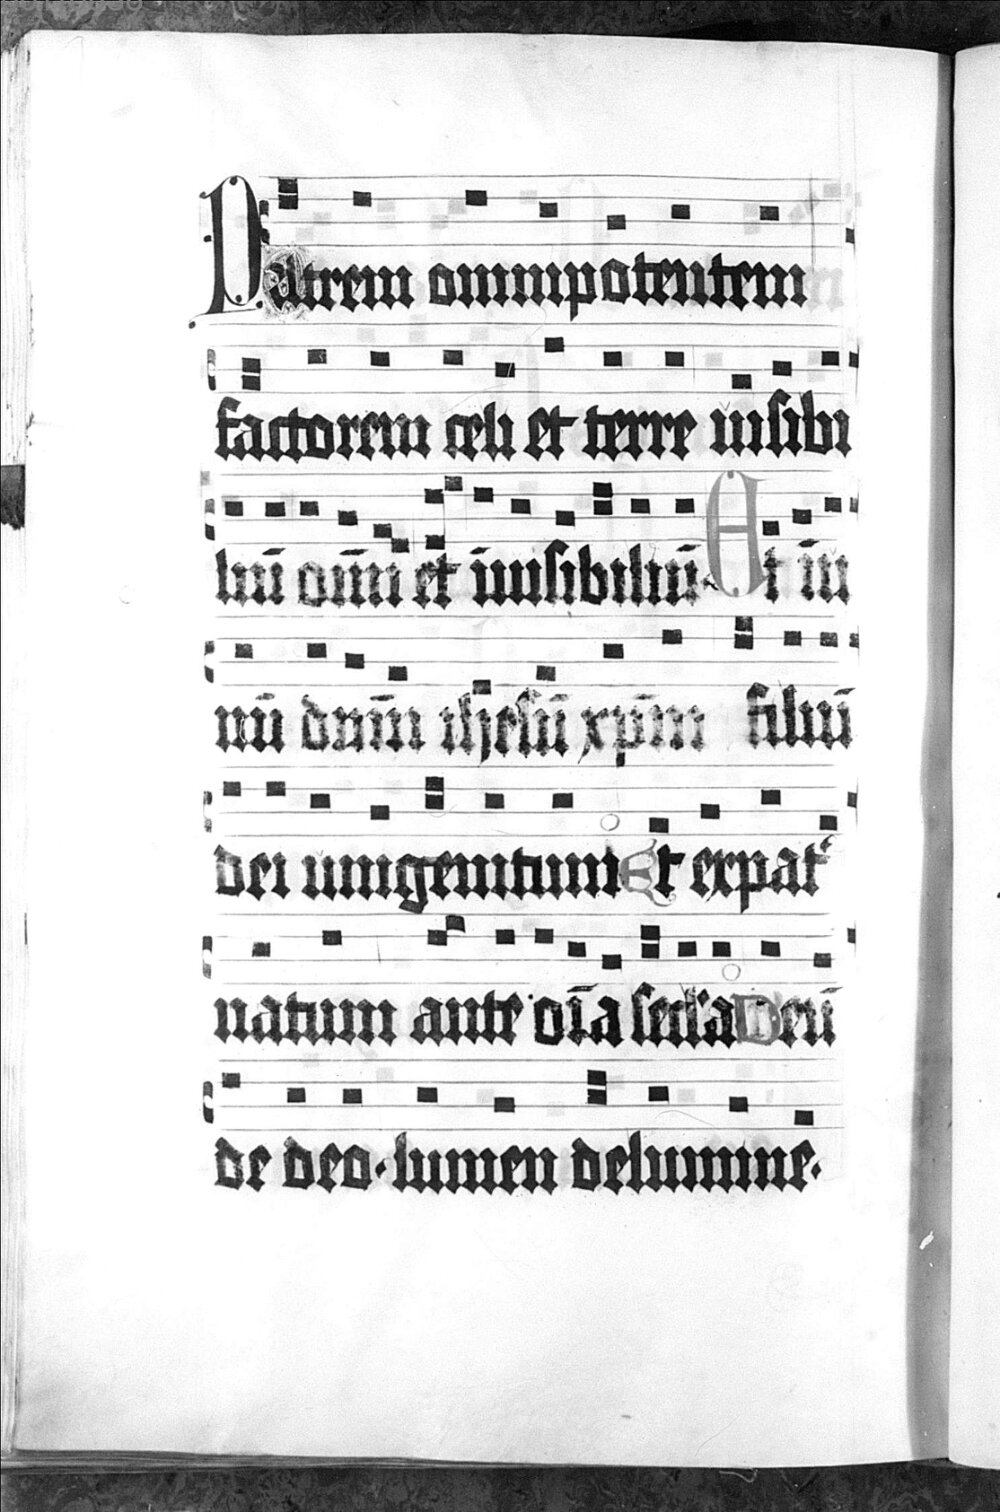 Patrem omnipotentem
factorem celi et terre uisibi
liū oīm et īuisibiliū· Et īu
nū dnm̄ ihesū xpm̄ filiū
dei unigenitum Et expatͬ
natum ante oīa secl'a Deū
de deo· lumen delumine·